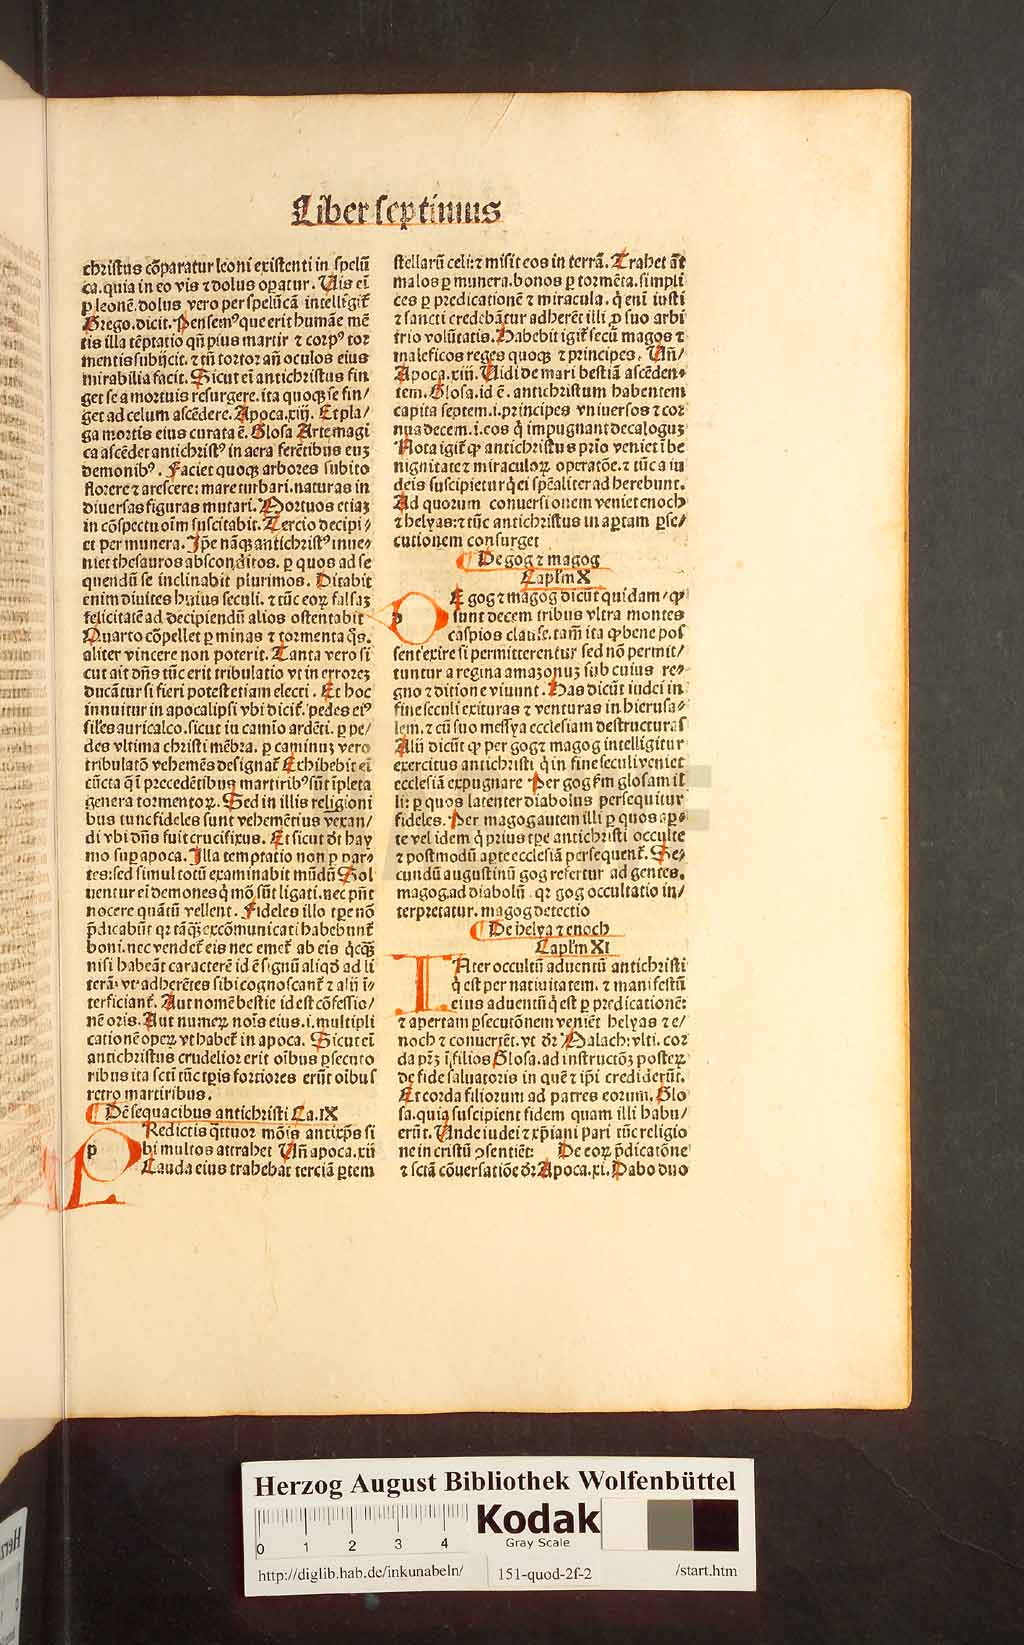 Liber septimus
christus cōparatur leoni existenti in spelū
ca. quia in eo vis ⁊ dolus oꝑatur. Uis eī
ꝑ leonē. dolus vero per spelūcā intelligit̄
Grego. dicit. Pensemꝰ que erit humāe mē
tis illa tēptatio qn̄ pius martir ⁊ corpꝰ tor
mentis subijcit. ⁊ tn̄ tortor an̄ oculos eius
mirabilia facit. Sicut eī antichristus fin
get se a mortuis resurgere. ita quoqꝫ se fin/
get ad celum ascēdere. Apoca. xiij. Et pla/
ga mortis eius curata ē. Glosa Arte magi
ca ascēdet antichristꝰ in aera ferētibus euꝫ
demonibꝰ. Faciet quoqꝫ arbores subito
florere ⁊ arescere: mare turbari. naturas in
diuersas figuras mutari. Mortuos etiaꝫ
in cōspectu oīm suscitabit. Tercio decipi/
et per munera. Ip̄e nāqꝫ antichristꝰ inue/
niet thesauros absconditos. ꝑ quos ad se
quendū se inclinabit plurimos. Ditabit
enim diuites huius seculi. ⁊ tūc eoꝝ falsaꝫ
felicitatē ad decipiendū alios ostentabit
Quarto cōpellet ꝑ minas ⁊ tormenta q̄s.
aliter vincere non poterit. Tanta vero si
cut ait dn̄s tūc erit tribulatio vt in erroreꝫ
ducātur si fieri potest etiam electi. Et hoc
innuitur in apocalipsi vbi dicit̄. pedes eiꝰ
siles auricalco. sicut in camio ardēti. ꝑ pe/
des vltima christi mēbra. ꝑ caminuꝫ vero
tribulatō vehemēs designat̄ Exhibebit eī
cūcta q̄ ī precedētibus martiribꝰ sūt īpleta
genera tormentoꝝ. Sed in illis religioni
bus tunc fideles sunt vehemētius vexan/
di vbi dn̄s fuit crucifixus. Et sicut dr̄ hay
mo suꝑ apoca. Illa temptatio non ꝑ par/
tes: sed simul totū examinabit mūdū Sol
uentur ei demones q̄ mō sūt ligati. nec pn̄t
nocere quātū vellent. Fideles illo tꝑe nō
p̄dicabūt qꝛ tāqꝫ excōmunicati habebunt̄
boni. nec vendet̄ eis nec emet̄ ab eis q̄cqꝫ
nisi habeāt caracterē id ē signū aliqd̄ ad li
terā: vt adherētes sibi cognoscant̄ ⁊ alii ī/
terficiant̄. Aut nomē bestie id est cōfessio/
nē oris. Aut numeꝝ nois eius. i. multipli
cationē opeꝝ vt habet̄ in apoca. Sicut eī
antichristus crudelior erit oībus ꝑsecuto
ribus ita scti tūc tꝑis fortiores erūt oībus
retro martiribus.
De sequacibus antichristi Ca. IX
p Redictis q̄ttuor mōis antixp̄s si
bi multos attrahet Un̄ apoca. xii
Cauda eius trahebat terciā ꝑtem
stellarū celi: ⁊ misit eos in terrā. Trahet āt
malos ꝑ munera. bonos ꝑ tormēta. simpli
ces ꝑ predicationē ⁊ miracula. q̄ eni iusti
⁊ sancti credebātur adherēt illi ꝓ suo arbi
trio volūtatis. Habebit igit̄ secū magos ⁊
maleficos reges quoqꝫ ⁊ principes. Un̄/
Apoca. xiii. Uidi de mari bestiā ascēden/
tem. Glosa. id ē. antichristum habentem
capita septem. i. principes vniuersos ⁊ cor
nua decem. i. eos q̄ impugnant decaloguꝫ
Nota igit̄ ꝙ antichristus prio veniet ī be
nignitate ⁊ miraculoꝝ operatōe. ⁊ tūc a iu
deis suscipietur q̄ ei spēaliter adherebunt.
Ad quorum conuersionem veniet enoch
⁊ helyas: ⁊ tūc antichristus in aꝑtam ꝑse/
cutionem consurget
De gog ⁊ magog
Capl̄m X
D E gog ⁊ magog dicūt quidam/ ꝙ
sunt decem tribus vltra montes
caspios clause. tam̄ ita ꝙ bene pos
sent exire si permitterentur sed nō permit/
tuntur a regina amazonuꝫ sub cuius re/
gno ⁊ ditione viuunt. Has dicūt iudei in
fine seculi exituras ⁊ venturas in hierusa/
lem. ⁊ cū suo messya ecclesiam destructuras
Alii dicūt ꝙ per gog ⁊ magog intelligitur
exercitus antichristi q̄ in fine seculi veniet
ecclesiā expugnare Per gog f̄m glosam il
li: ꝑ quos latenter diabolus persequitur
fideles. Per magog autem illi ꝑ quos aꝑ/
te vel idem q̄ prius tꝑe antichristi occulte
⁊ postmodū aꝑte ecclesiā persequent̄. Se/
cundū augustinū gog refertur ad gentes.
magog ad diabolū. qꝛ gog occultatio in/
terpretatur. magog detectio
De helya ⁊ enoch
Capl̄m XI
I Nter occultū aduentū antichristi
q̄ est per natiuitatem. ⁊ manifestū
eius aduentū q̄ est ꝑ predicationē:
⁊ apertam ꝑsecutōnem veniēt helyas ⁊ e/
noch ⁊ conuertēt. vt dr̄ Malach: vlti. cor
da pr̄ꝫ ī filios Glosa. ad instructōꝫ posteꝝ
de fide saluatoris in quē ⁊ ip̄i crediderūt.
Et corda filiorum ad patres eorum. Glo
sa. quia suscipient fidem quam illi habu/
erūt. Unde iudei ⁊ xp̄iani pari tūc religio
ne in cristū ꝯsentiēt: De eoꝝ p̄dicatōne
⁊ sctā cōuersatiōe dr̄: Apoca. xi. Dabo duo
Herzog August Bibliothek Wolfenbüttel
0 1 2 3 4
Kodak
Gray Scale
http://diglib.hab.de/inkunabeln/ 151-quod-2f-2 /start.htm